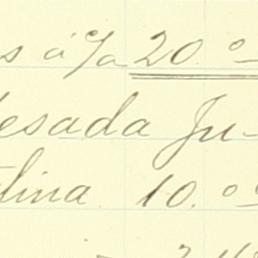 s á c/a 20.º
esada Ju-
lina 10.º